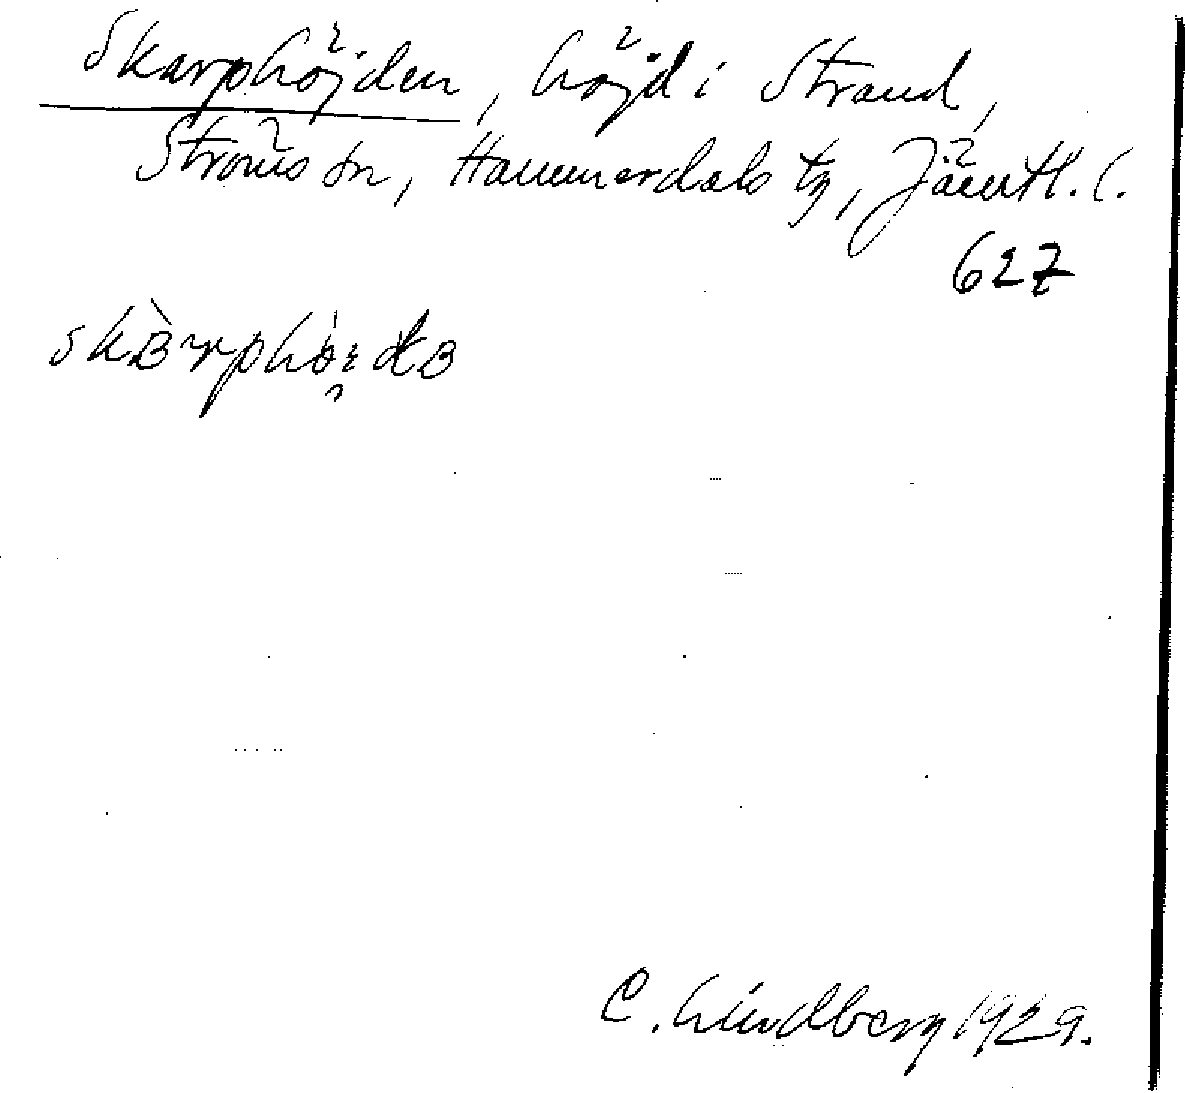 Skarphöjden, höjd i Strand,
Ströms sn, Hammerdals tg, Jämtl. l.
627
C. Lindberg 1929.